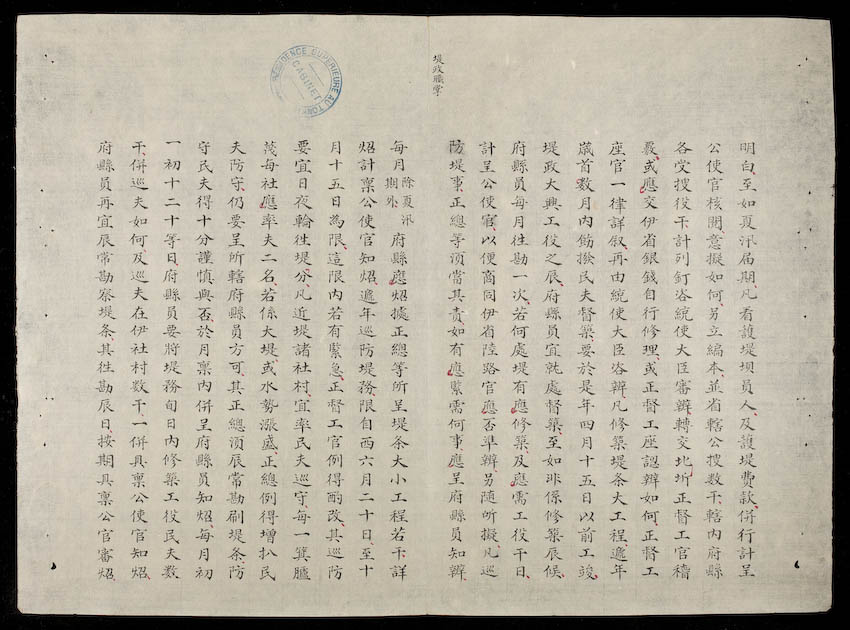 堤政職掌
明白至如夏汛届期凡看護堤垻員人及護堤費款併行計呈
公使官核閱意擬如何另立編本並省轄公搜数干轄内府縣
各受搜役干計列釘咨統使大臣審辦轉交北圻正督工官稽
覈或應交伊省銀錢自行修理或正督工座認辦如何正督工
座官一律詳敘再由統使大臣咨辦凡修築堤条大工程遞年
歳首数月内飭撥民夫督築要於是年四月十五日以前工竣
堤政大興工役之辰府縣員宜就處督築至如非係修築辰候
府縣員每月往勘一次若何處堤有應修築及應需工役干日
計呈公使官以便商同伊省陸路官應否準辦另隨所擬凡巡
防堤事正總等須當其責如有應緊需何事應呈府縣員知辦
每月除夏汛期外府縣應炤據正總等所呈堤条大小工程若干詳
炤計禀公使官知炤遞年巡防堤務限自西六月二十日至十
月十五日為限這限内若有緊急正督工官例得酌改其巡防
要宜日夜輪往堤分凡近堤諸社村宜率民夫巡守每一箕臚
茂每社應率夫二名若係大堤或水勢漲盛正總例得增扒民
夫防守仍要呈所轄府縣員方可其正總須辰常勘刷堤条防
守民夫得十分謹慎與否於月禀内併呈府縣員知炤每月初
一初十二十等日府縣員要將堤務旬日内修築工役民夫数
干併巡夫如何及巡夫在伊社村数干一併具禀公使官知炤
府縣員再宜辰常勘察堤条其往勘辰日按期具禀公官審炤
RÉSIDENCE SUPÉRIEURE AU TONKIN
CABINET